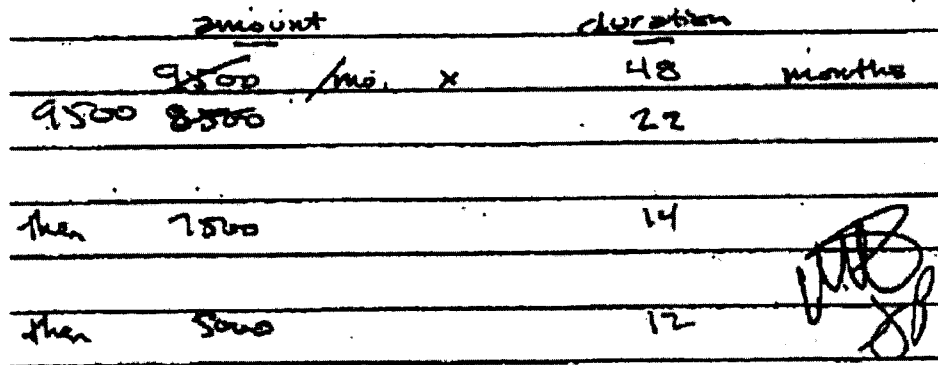 amount duration
9500 /mo. x 48 months
9500 8500 22
then 7500 14
then 5000 12